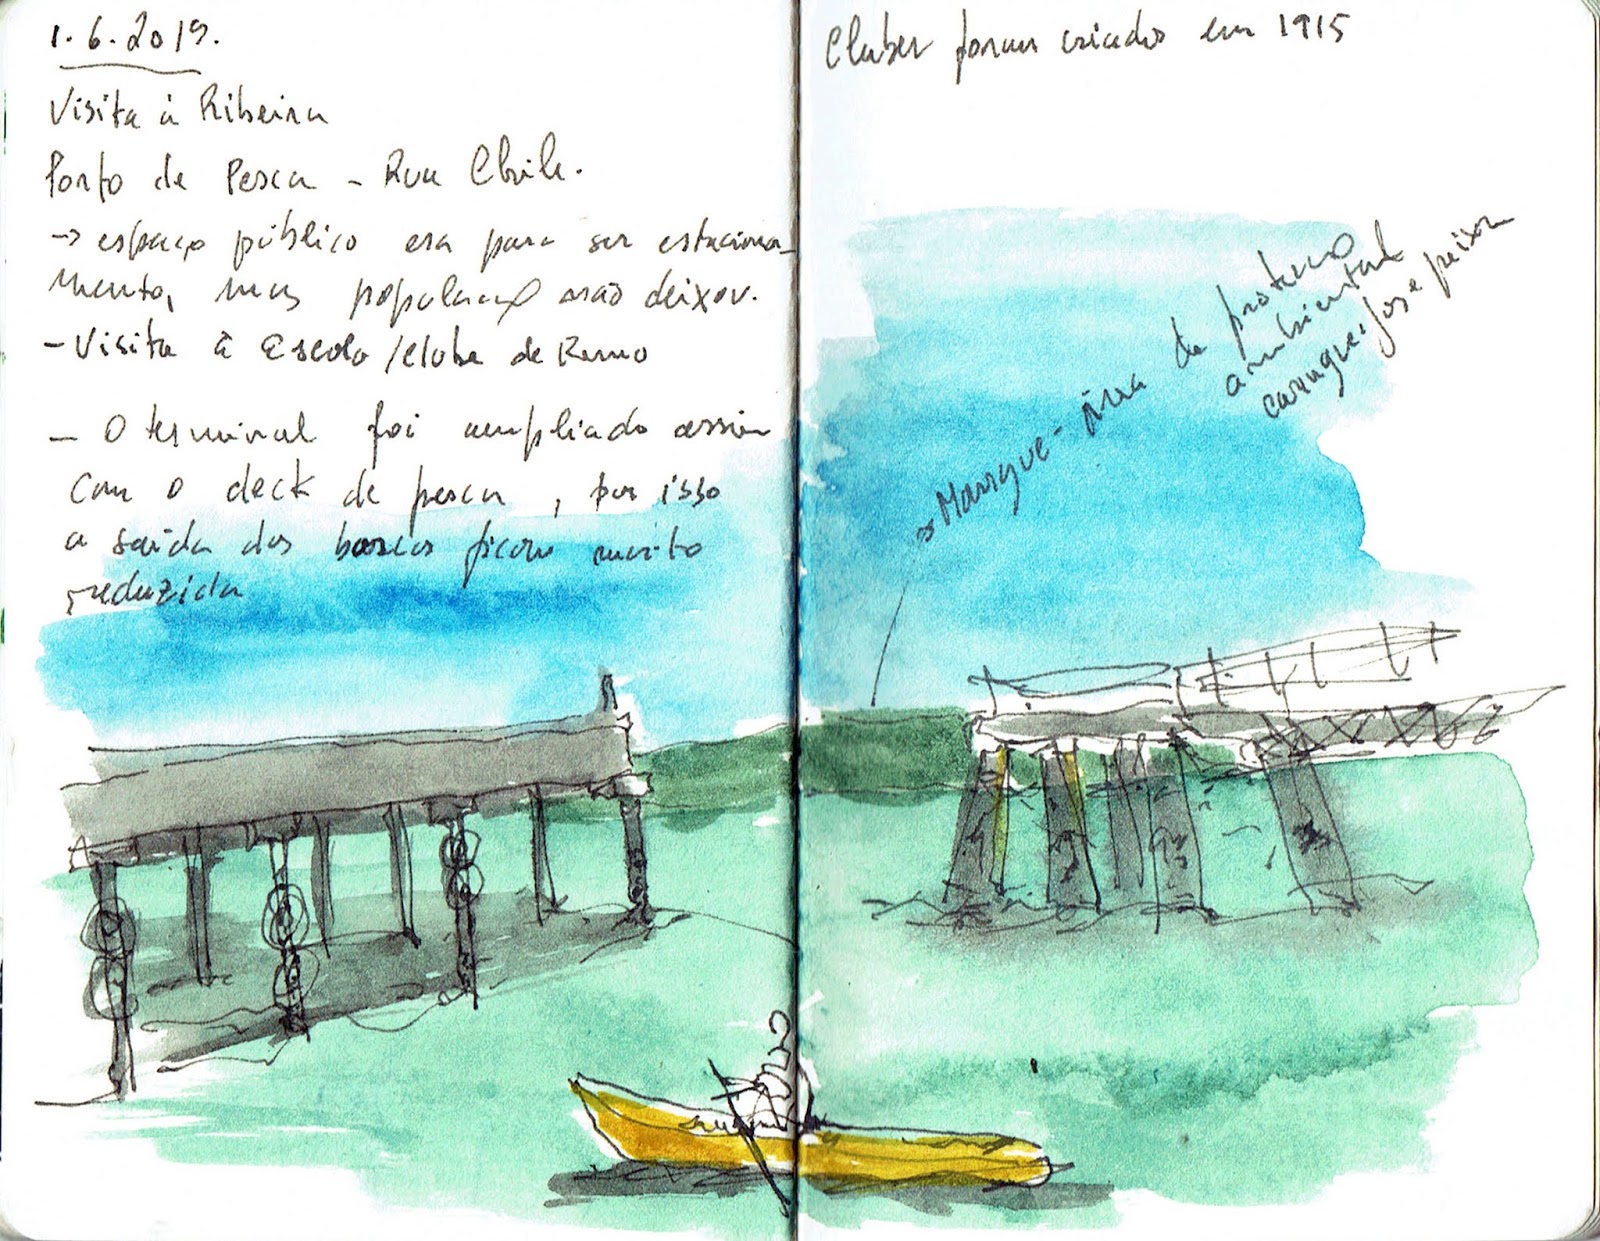 1.6.2019.
Visita à Ribeira
Porto de Pesca - Rua Chile.
→ espaço público era para ser estaciona-
mento, mas população não deixou.
- Visita à Escola/Clube de Remo
- O terminal foi ampliado assim
com o deck de pesca, por isso
a saída dos barcos ficou muito
reduzida
Clubes foram criados em 1915
→ Mangue - área de proteção
ambiental
caranguejos e peixes